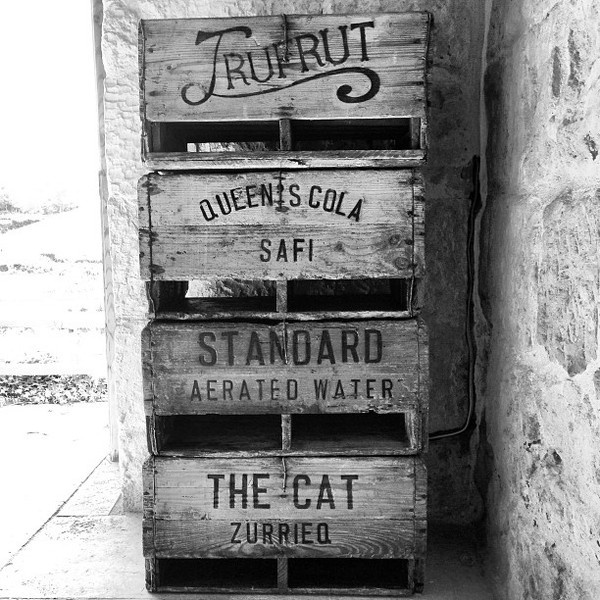 TRUFRUT
QUEEN'S COLA
SAFI
STANDARD
AERATED WATER
THE CAT
ZURRIEQ